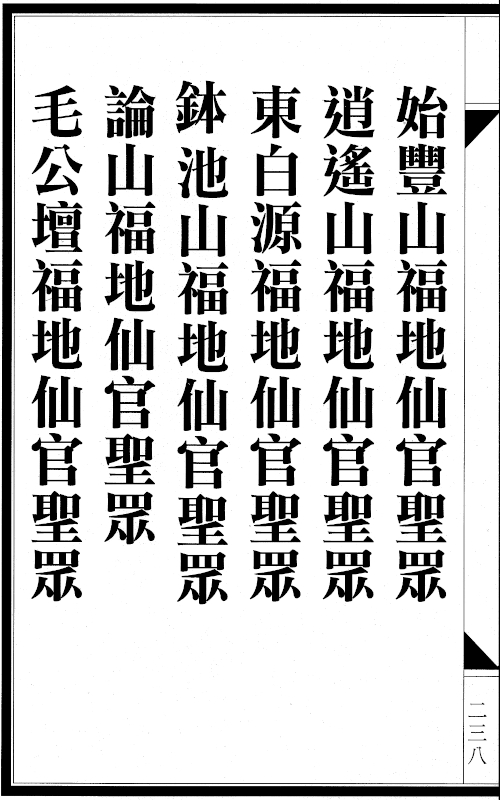 始豐山福地仙官聖眾
逍遙山福地仙官聖眾
東白源福地仙官聖眾
鉢池山福地仙官聖眾
論山福地仙官聖眾
毛公壇福地仙官聖眾
二三八